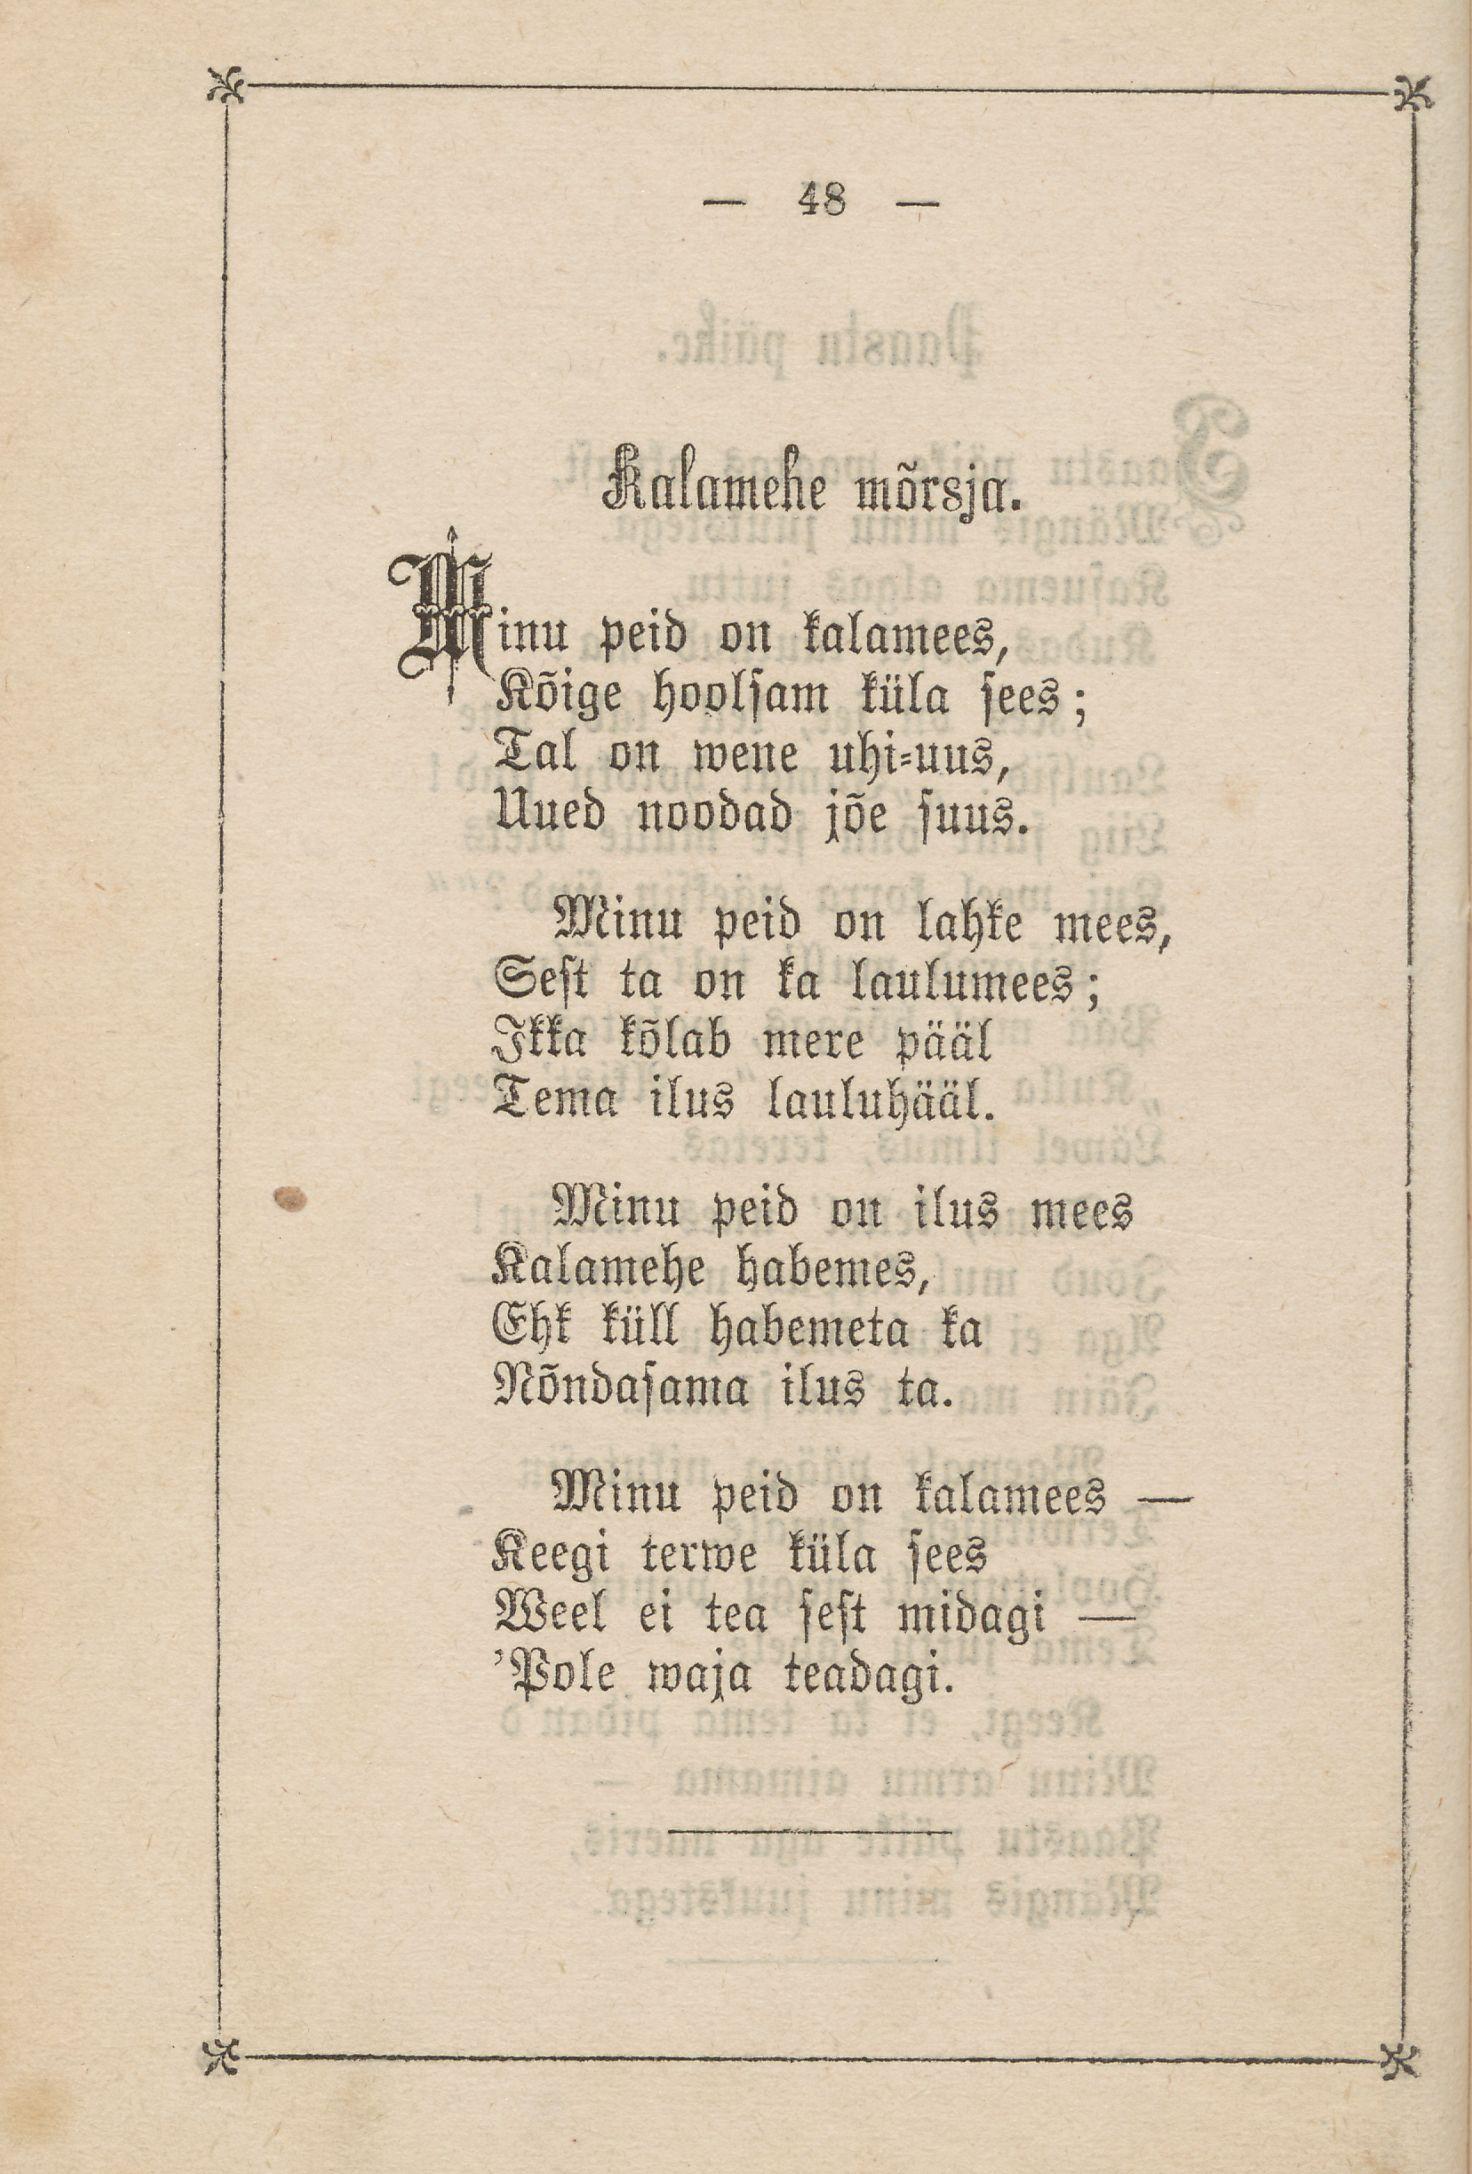 — 48 —
Kalamehe mõrsja.
Minu peid on kalamees,
Kõige hoolsam küla sees;
Tal on wene uhi-uus,
Uued noodad jõe suus.
Minu peid on lahke mees,
Sest ta on ka laulumees;
Ikka kõlab mere pääl
Tema ilus lauluhääl.
Minu peid on ilus mees
Kalamehe habemes,
Ehk küll habemeta ka
Nõndasama ilus ta.
Minu peid on kalamees —
Keegi terwe küla sees
Weel ei tea sest midagi —
’Pole waja teadagi.